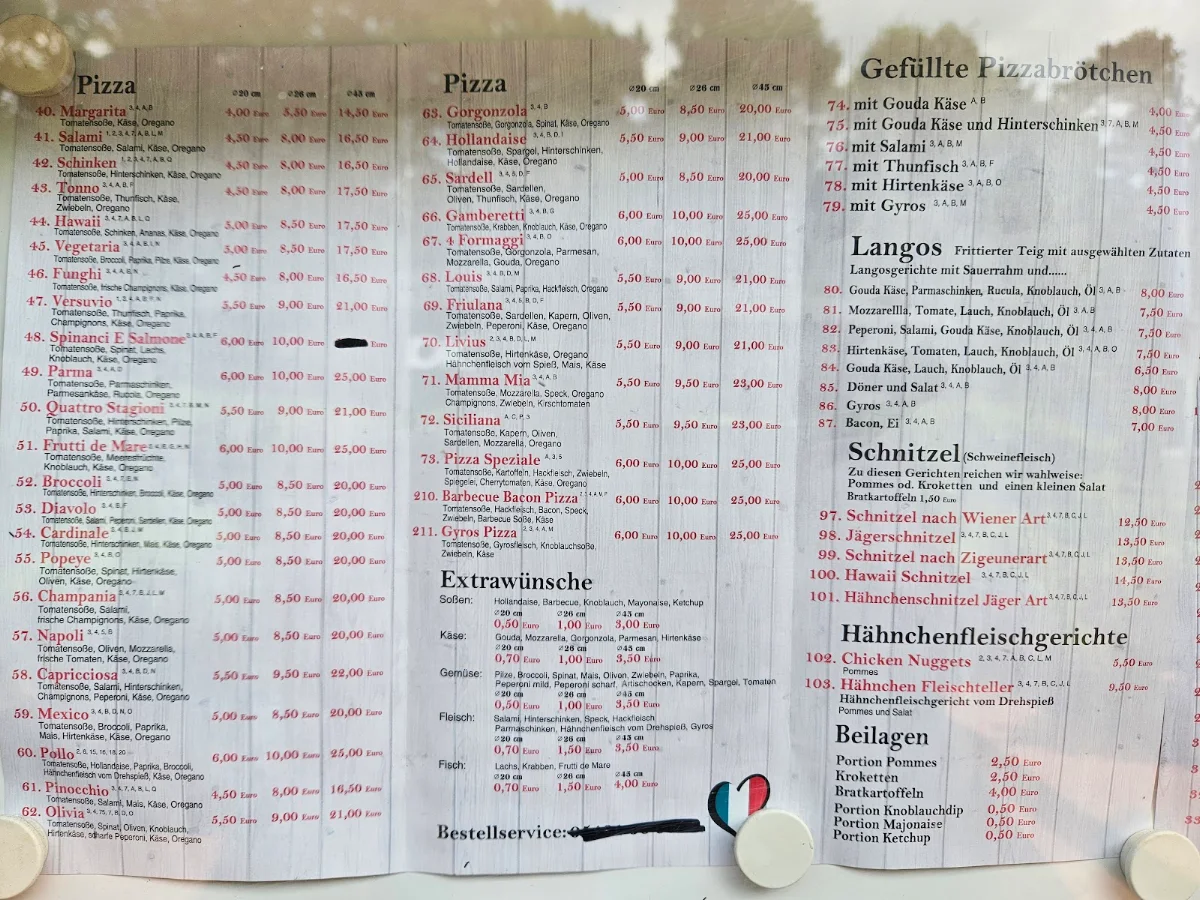 Pizza
⌀20 cm ⌀26 cm ⌀45 cm
40. Margarita 3, 4, A, B 4,00 Euro 5,50 Euro 14,50 Euro
Tomatensoße, Käse, Oregano
41. Salami 1, 2, 3, 4, 7, A, B, L, M 4,50 Euro 8,00 Euro 16,50 Euro
Tomatensoße, Salami, Käse, Oregano
42. Schinken 1, 2, 3, 4, 7, A, B, O 4,50 Euro 8,00 Euro 16,50 Euro
Tomatensoße, Hinterschinken, Käse, Oregano
43. Tonno 3, 4, A, B, F 4,50 Euro 8,00 Euro 17,50 Euro
Tomatensoße, Thunfisch, Käse,
Zwiebeln, Oregano
44. Hawaii 3, 4, 7, A, B, L, O 5,00 Euro 8,50 Euro 17,50 Euro
Tomatensoße, Schinken, Ananas, Käse, Oregano
45. Vegetaria 5,00 Euro 8,50 Euro 17,50 Euro
Tomatensoße, Broccoli, Paprika, Pilze, Käse, Oregano
46. Funghi 4,50 Euro 8,00 Euro 16,50 Euro
Tomatensoße, frische Champignons, Käse, Oregano
47. Versuvio 5,50 Euro 9,00 Euro 21,00 Euro
Tomatensoße, Thunfisch, Paprika,
Champignons, Käse, Oregano
48. Spinanci E Salmone 6,00 Euro 10,00 Euro Euro
Tomatensoße, Spinat, Lachs,
Knoblauch, Käse, Oregano
49. Parma 6,00 Euro 10,00 Euro 25,00 Euro
Tomatensoße, Parmaschinken,
Parmesankäse, Rucola, Oregano
50. Quattro Stagioni 5,50 Euro 9,00 Euro 21,00 Euro
Tomatensoße, Hinterschinken, Pilze,
Paprika, Salami, Käse, Oregano
51. Frutti de Mare 6,00 Euro 10,00 Euro 25,00 Euro
Tomatensoße, Meeresfrüchte,
Knoblauch, Käse, Oregano
52. Broccoli 5,00 Euro 8,50 Euro 20,00 Euro
Tomatensoße, Hinterschinken, Broccoli, Käse, Oregano
53. Diavolo 5,00 Euro 8,50 Euro 20,00 Euro
Tomatensoße, Salami, Peperoni, Sardellen, Käse, Oregano
54. Cardinale 5,00 Euro 8,50 Euro 20,00 Euro
Tomatensoße, Hinterschinken, Mais, Käse, Oregano
55. Popeye 5,00 Euro 8,50 Euro 20,00 Euro
Tomatensoße, Spinat, Hirtenkäse,
Oliven, Käse, Oregano
56. Champania 5,00 Euro 8,50 Euro 20,00 Euro
Tomatensoße, Salami,
frische Champignons, Käse, Oregano
57. Napoli 3, 4, 5, B 5,00 Euro 8,50 Euro 20,00 Euro
Tomatensoße, Oliven, Mozzarella,
frische Tomaten, Käse, Oregano
58. Capricciosa 3, 4, B, D, N 5,50 Euro 9,50 Euro 22,00 Euro
Tomatensoße, Salami, Hinterschinken,
Champignons, Peperoni, Käse, Oregano
59. Mexico 3, 4, B, D, N, O 5,00 Euro 8,50 Euro 20,00 Euro
Tomatensoße, Broccoli, Paprika,
Mais, Hirtenkäse, Käse, Oregano
60. Pollo 6,00 Euro 10,00 Euro 25,00 Euro
Tomatensoße, Hollandaise, Paprika, Broccoli,
Hähnchenfleisch vom Drehspieß, Käse, Oregano
61. Pinocchio 3, 4, 7, A, B, L, O 4,50 Euro 8,00 Euro 16,50 Euro
Tomatensoße, Salami, Mais, Käse, Oregano
62. Olivia 5,50 Euro 9,00 Euro 21,00 Euro
Tomatensoße, Spinat, Oliven, Knoblauch,
Hirtenkäse, scharfe Peperoni, Käse, Oregano
Pizza
⌀20 cm ⌀26 cm ⌀45 cm
63. Gorgonzola 3, 4, B 5,00 Euro 8,50 Euro 20,00 Euro
Tomatensoße, Gorgonzola, Spinat, Käse, Oregano
64. Hollandaise 3, 4, B, D, I 5,50 Euro 9,00 Euro 21,00 Euro
Tomatensoße, Spargel, Hinterschinken,
Hollandaise, Käse, Oregano
65. Sardell 3, 4, 5, D, F 5,00 Euro 8,50 Euro 20,00 Euro
Tomatensoße, Sardellen,
Oliven, Thunfisch, Käse, Oregano
66. Gamberetti 3, 4, B, G 6,00 Euro 10,00 Euro 25,00 Euro
Tomatensoße, Krabben, Knoblauch, Käse, Oregano
67. 4 Formaggi 3, 4, B, O 6,00 Euro 10,00 Euro 25,00 Euro
Tomatensoße, Gorgonzola, Parmesan,
Mozzarella, Gouda, Oregano
68. Louis 3, 4, D, D, M 5,50 Euro 9,00 Euro 21,00 Euro
Tomatensoße, Salami, Paprika, Hackfleisch, Oregano
69. Friulana 3, 4, 5, B, D, F 5,50 Euro 9,00 Euro 21,00 Euro
Tomatensoße, Sardellen, Kapern, Oliven,
Zwiebeln, Peperoni, Käse, Oregano
70. Livius 2, 3, 4, B, D, L, M 5,50 Euro 9,00 Euro 21,00 Euro
Tomatensoße, Hirtenkäse, Oregano
Hähnchenfleisch vom Spieß, Mais, Käse
71. Mamma Mia 3, 4, A, B 5,50 Euro 9,50 Euro 23,00 Euro
Tomatensoße, Mozzarella, Speck, Oregano
Champignons, Zwiebeln, Kirschtomaten
72. Siciliana A, C, P, 3 5,50 Euro 9,50 Euro 23,00 Euro
Tomatensoße, Kapern, Oliven,
Sardellen, Mozzarella, Oregano
73. Pizza Speziale A, 3, 5 6,00 Euro 10,00 Euro 25,00 Euro
Tomatensoße, Kartoffeln, Hackfleisch, Zwiebeln,
Spiegelei, Cherrytomaten, Käse, Oregano
210. Barbecue Bacon Pizza 6,00 Euro 10,00 Euro 25,00 Euro
Tomatensoße, Hackfleisch, Bacon, Speck,
Zwiebeln, Barbecue Soße, Käse
211. Gyros Pizza 2, 3, 4, A, M 6,00 Euro 10,00 Euro 25,00 Euro
Tomatensoße, Gyrosfleisch, Knoblauchsoße,
Zwiebeln, Käse
Extrawünsche
Soßen: Hollandaise, Barbecue, Knoblauch, Mayonaise, Ketchup
⌀20 cm ⌀26 cm ⌀45 cm
0,50 Euro 1,00 Euro 3,00 Euro
Käse: Gouda, Mozzarella, Gorgonzola, Parmesan, Hirtenkäse
⌀20 cm ⌀26 cm ⌀45 cm
0,70 Euro 1,00 Euro 3,50 Euro
Gemüse: Pilze, Broccoli, Spinat, Mais, Oliven, Zwiebeln, Paprika,
Peperoni mild, Peperoni scharf, Artischocken, Kapern, Spargel, Tomaten
⌀20 cm ⌀26 cm ⌀45 cm
0,50 Euro 1,00 Euro 3,50 Euro
Fleisch: Salami, Hinterschinken, Speck, Hackfleisch
Parmaschinken, Hähnchenfleisch vom Drehspieß, Gyros
⌀20 cm ⌀26 cm ⌀45 cm
0,70 Euro 1,50 Euro 3,50 Euro
Fisch: Lachs, Krabben, Frutti de Mare
⌀20 cm ⌀26 cm ⌀45 cm
0,70 Euro 1,50 Euro 4,00 Euro
Bestellservice:
Gefüllte Pizzabrötchen
74. mit Gouda Käse A, B 4,00 Euro
75. mit Gouda Käse und Hinterschinken 3, 7, A, B, M 4,50 Euro
76. mit Salami 3, A, B, M 4,50 Euro
77. mit Thunfisch 3, A, B, F 4,50 Euro
78. mit Hirtenkäse 3, A, B, O 4,50 Euro
79. mit Gyros 3, A, B, M 4,50 Euro
Langos Frittierter Teig mit ausgewählten Zutaten
Langosgerichte mit Sauerrahm und......
80. Gouda Käse, Parmaschinken, Rucula, Knoblauch, Öl 3, A, B 8,00 Euro
81. Mozzarellla, Tomate, Lauch, Knoblauch, Öl 3, A, B 7,50 Euro
82. Peperoni, Salami, Gouda Käse, Knoblauch, Öl 3, 4, A, B 7,50 Euro
83. Hirtenkäse, Tomaten, Lauch, Knoblauch, Öl 3, 4, A, B, O 7,50 Euro
84. Gouda Käse, Lauch, Knoblauch, Öl 3, 4, A, B 6,50 Euro
85. Döner und Salat 3, 4, A, B 8,00 Euro
86. Gyros 3, 4, A, B 8,00 Euro
87. Bacon, Ei 3, 4, A, B 7,00 Euro
Schnitzel (Schweinefleisch)
Zu diesen Gerichten reichen wir wahlweise:
Pommes od. Kroketten und einen kleinen Salat
Bratkartoffeln 1,50 Euro
97. Schnitzel nach Wiener Art 3, 4, 7, B, C, J, L 12,50 Euro
98. Jägerschnitzel 3, 4, 7, B, C, J, L 13,50 Euro
99. Schnitzel nach Zigeunerart 3, 4, 7, B, C, J, L 13,50 Euro
100. Hawaii Schnitzel 3, 4, 7, B, C, J, L 14,50 Euro
101. Hähnchenschnitzel Jäger Art 3, 4, 7, B, C, J, L 13,50 Euro
Hähnchenfleischgerichte
102. Chicken Nuggets 2, 3, 4, 7, A, B, C, L, M 5,50 Euro
Pommes
103. Hähnchen Fleischteller 3, 4, 7, B, C, J, L 9,50 Euro
Hähnchenfleischgericht vom Drehspieß
Pommes und Salat
Beilagen
Portion Pommes 2,50 Euro
Kroketten 2,50 Euro
Bratkartoffeln 4,00 Euro
Portion Knoblauchdip 0,50 Euro
Portion Majonaise 0,50 Euro
Portion Ketchup 0,50 Euro